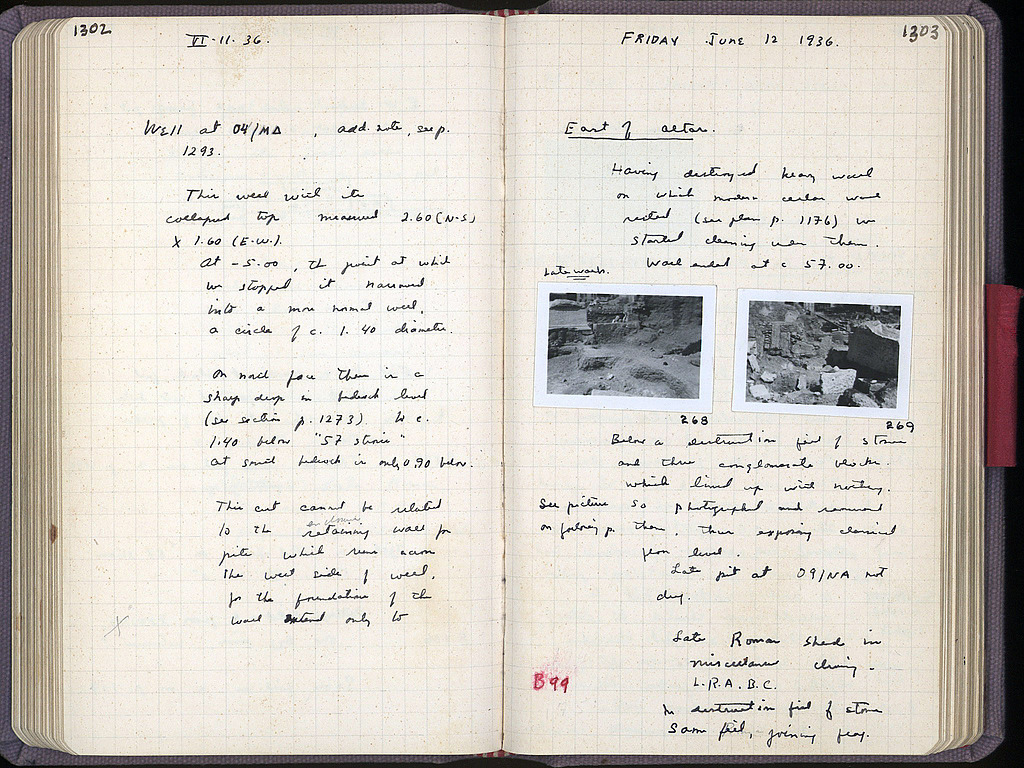 1302
VI-11-36.
Well at 04/ΜΔ, add. note, see p.
1293.
This well with its
collapsed top measured 2.60 (N-S)
X 1.60 (E-W).
At -5.00, the point at which
we stopped it narrowed
into a more normal well,
a circle of c. 1.40 diameter.
On north face there is a
sharp drop in bedrock level
(see section p. 1273) to c.
1.40 below "57 stone"
at south bedrock is only 0.90 below.
This cut cannot be related
enclosure
to the retaining wall for
pite which runs across
the west side of well,
for the foundations of the
wall extend only to
X
1303
FRIDAY JUNE 12 1936.
East of altar.
Having destroyed heavy wall
on which modern cellar wall
rested (see plan p. 1176) we
started cleaning under them.
Wall ended at c 57.00.
Late walls.
268
269
Below a destruction fill of stone
and three conglomerate blocks
which lined up with nothing.
See picture So photographed and removed
on following p. them, thus exposing classical
floor level.
Late pit at 09/ΝΑ not
dug.
Late Roman sherds in
miscellaneous cleaning.
L.R.A.B.C.
In destruction fill of stone
Same fill, joining frag.
B99